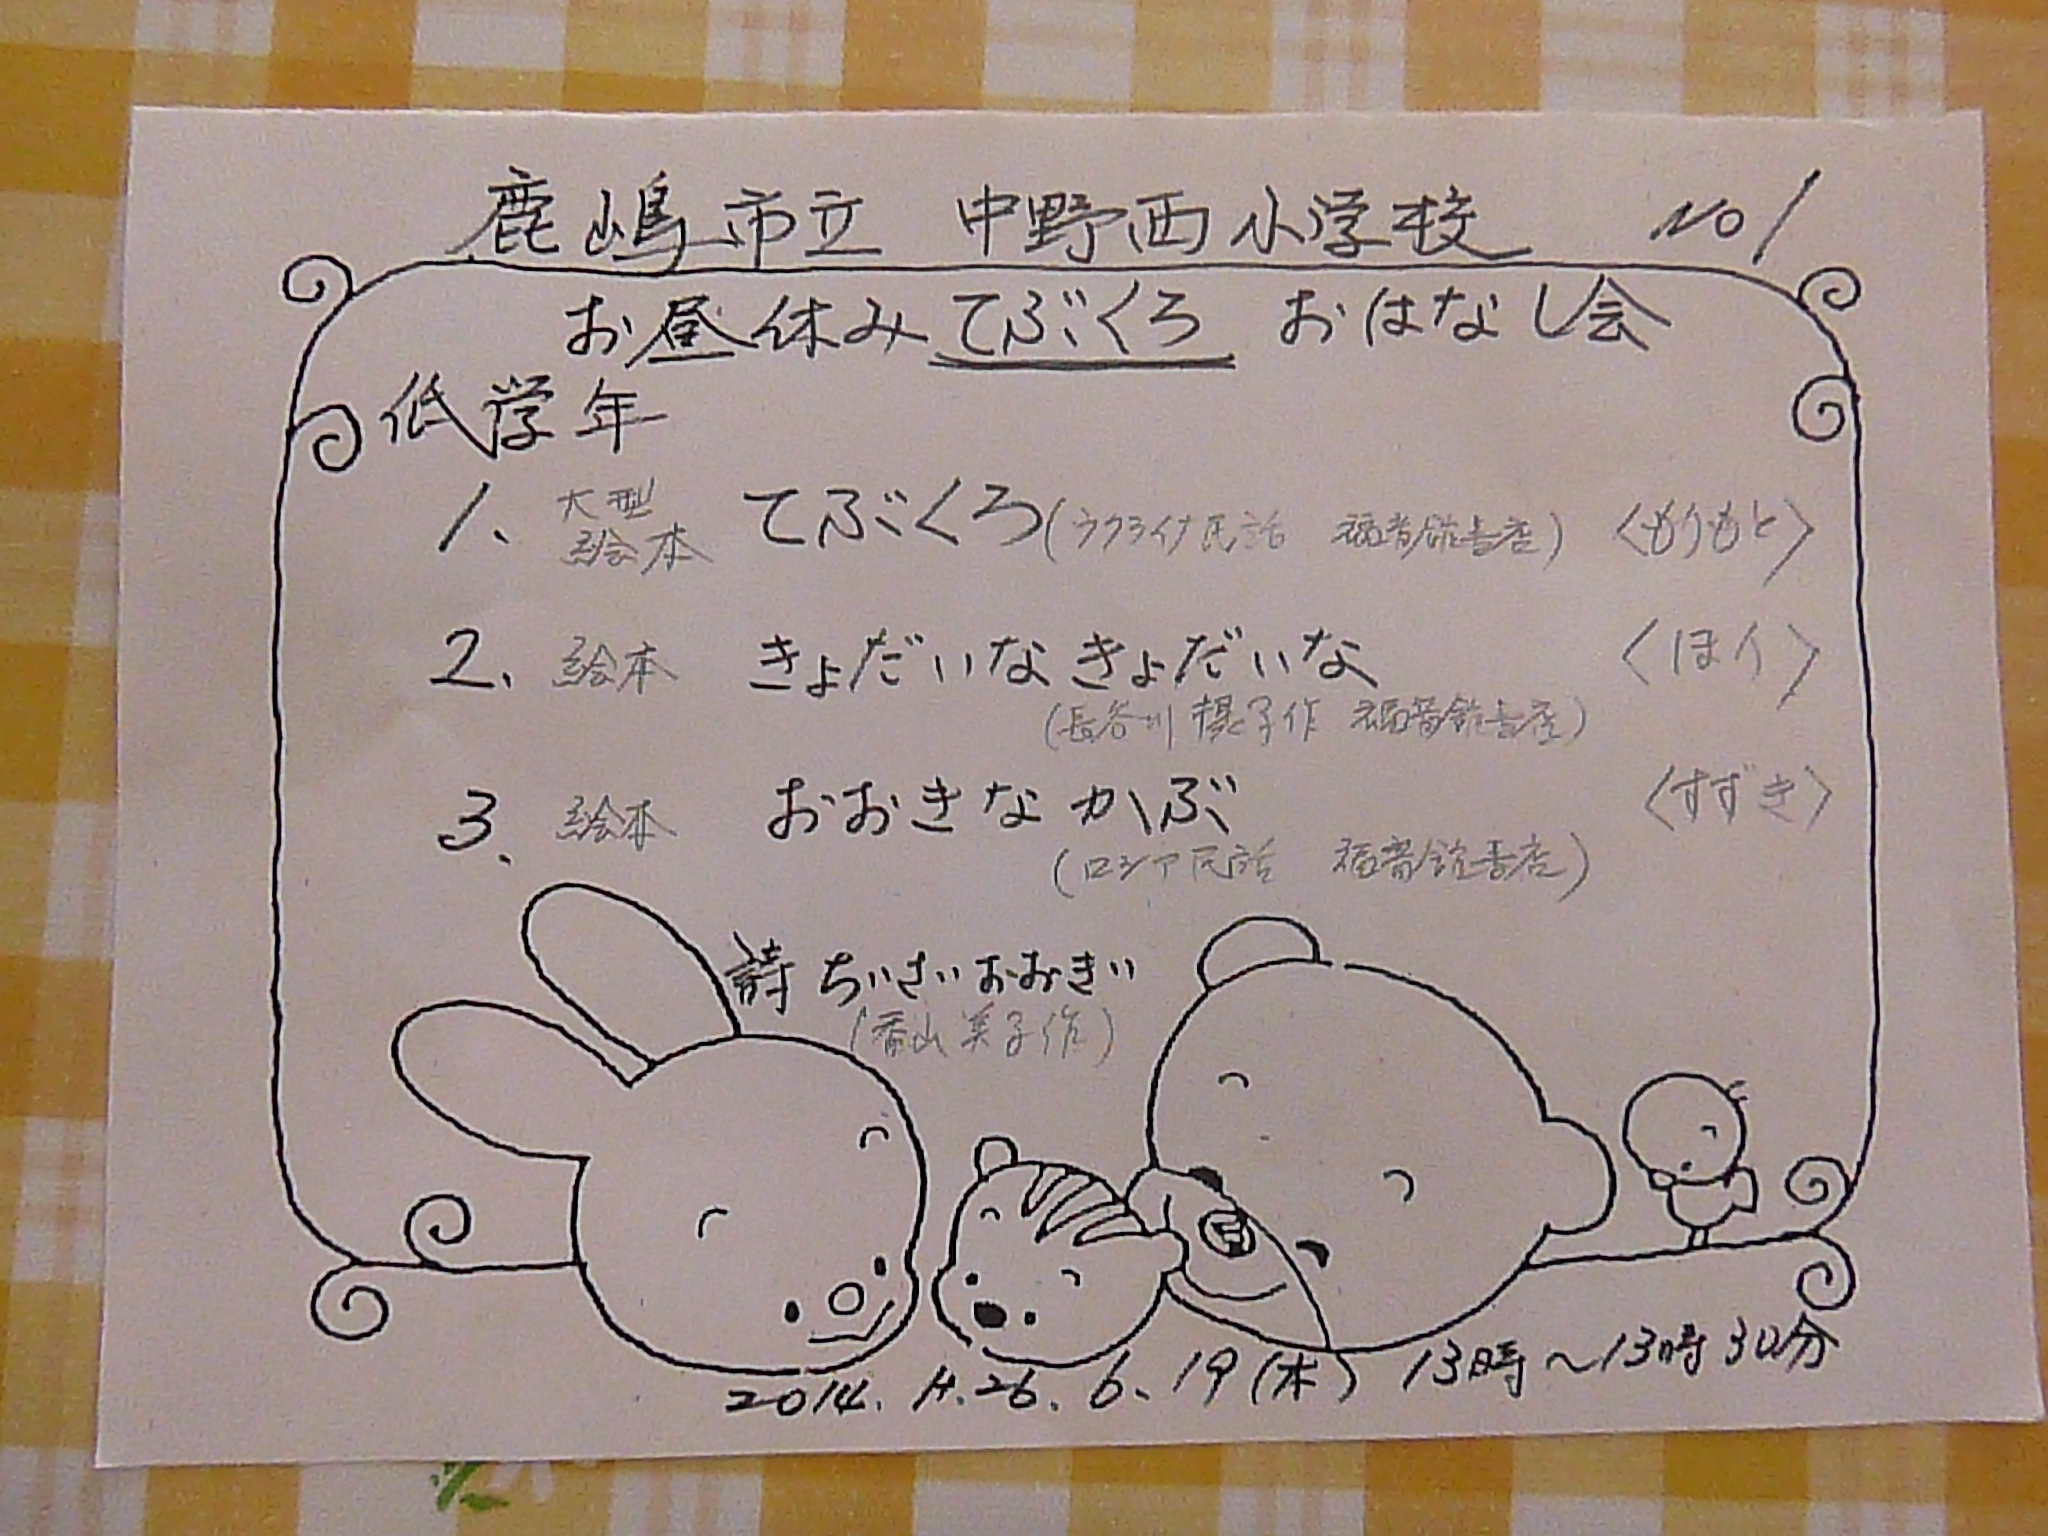 鹿嶋市立 中野西小学校 NO1
お昼休みてぶくろ おはなし会
低学年
1、大型絵本 てぶくろ(ウクライナ民話 福音館書店) 〈もりもと〉
2、絵本 きょだいなきょだいな 〈ほり〉
(長谷川摂子作 福音館書店)
3、絵本 おおきなかぶ 〈すずき〉
(ロシア民話 福音館書店)
詩 ちいさいおおきい
(香山美子作)
2014. H.26. 6. 19(木) 13時~13時30分